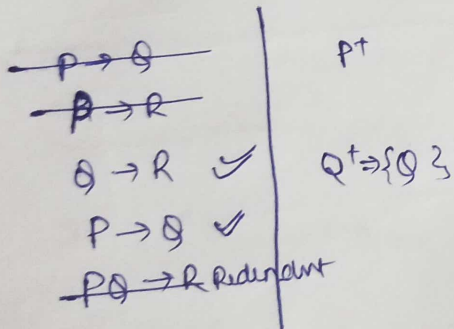 P → Q
P → R
Q → R ✓
P → Q ✓
PQ → R Redundant
P⁺
Q⁺ ⇒ {Q}